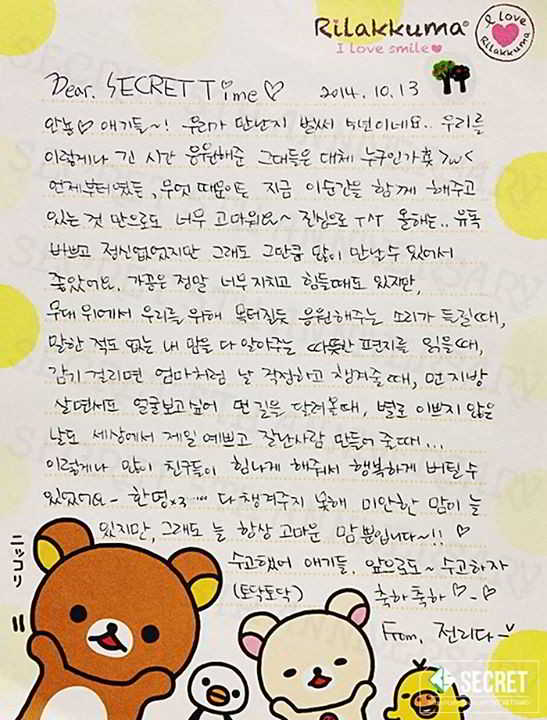 Rilakkuma®
I love smile
I love
Rilakkuma
Dear. SECRET Time♡ 2014.10.13
안뇽♡ 애기들~! 우리가 만난지 벌써 5년이네요.. 우리를
이렇게나 긴 시간 응원해준 그대들은 대체 누구인가훗 >w<
언제부터였든, 무엇 때문이든 지금 이순간을 함께 해주고
있는 것 만으로도 너무 고마워요~ 진심으로 TAT 올해는.. 유독
바쁘고 정신없었지만 그래도 그만큼 많이 만난수 있어서
좋았어요. 가끔은 정말 너무 지치고 힘들때도 있지만,
무대 위에서 우리를 위해 목터질듯 응원해주는 소리가 들릴때,
말한 적도 없는 내 맘을 다 알아주는 따뜻한 편지를 읽을때,
감기 걸리면 엄마처럼 날 걱정하고 챙겨줄때, 먼 지방
살면서도 얼굴보고싶어 먼 길을 달려올때, 별로 이쁘지 않은
날도 세상에서 제일 예쁘고 잘난사람 만들어 줄때...
이렇게나 많이 친구들이 힘나게 해줘서 행복하게 버틸수
있었어요~ 한명x3.... 다 챙겨주지 못해 미안한 맘이 늘
있지만, 그래도 늘 항상 고마운 맘뿐입니다~!! ♡
수고했어 애기들. 앞으로도~ 수고하자
(토닥토닥) 축하축하♡-♡
From. 전리다
ニッコリ
SECRET